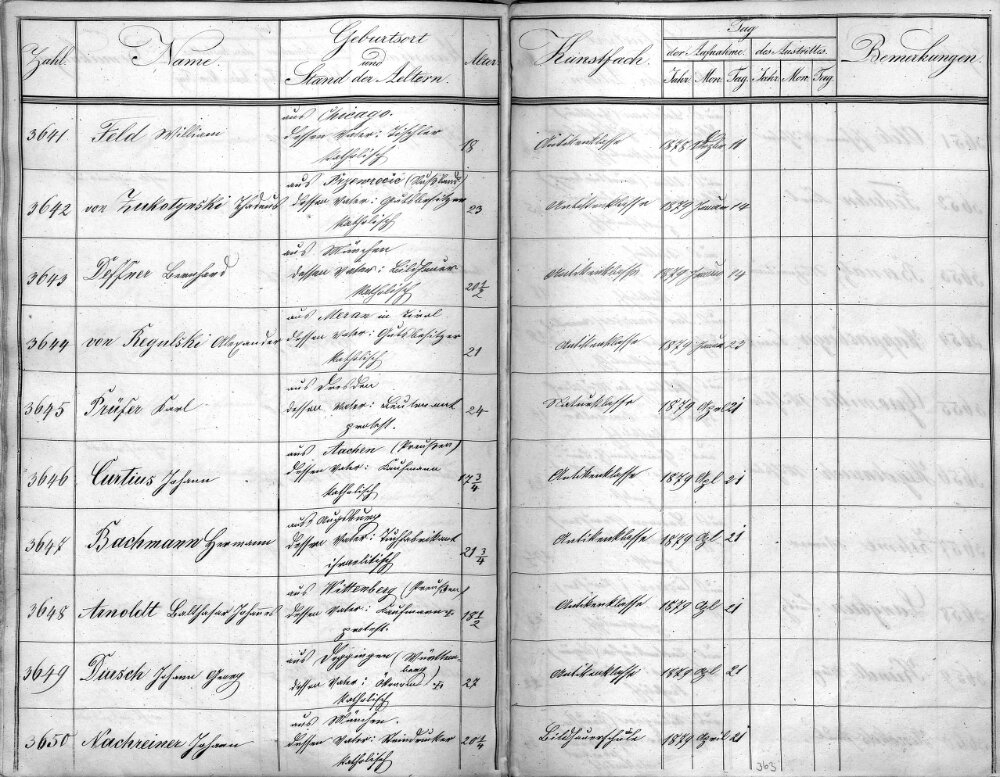 Zahl. Name. Geburtsort und Stand der Aeltern. Alter. Kunstfach. Tag der Aufnahme. des Austrittes. Bemerkungen.
Jahr Mon. Tag Jahr Mon. Tag
aus Chicago.
3641 Feld William dessen Vater: Tischler 18 Antikenklasse 1878 Dezbr 11
katholisch
aus (Rußland)
3642 von Thadeus dessen Vater: Gutsbesitzer 23 Antikenklasse 1879 Januar 14
katholisch
aus München
3643 Deffner Bernhard dessen Vater: Bildhauer 20 1/2 Antikenklasse 1879 Januar 14
katholisch
aus Meran in Tirol
3644 von Regulski Alexander dessen Vater: Gutsbesitzer 21 Antikenklasse 1879 Januar 23
katholisch
aus Dresden
3645 Prüfer Karl dessen Vater: Lieutenant 24 Naturklasse 1879 April 21
protest.
aus Aachen (Preußen)
3646 Curtius Johann dessen Vater: Kaufmann 17 3/4 Antikenklasse 1879 Apl 21
katholisch
aus Augsburg
3647 Bachmann Hermann dessen Vater: Tuchfabrikant 21 3/4 Antikenklasse 1879 Apl 21
israelitisch
aus Wittenberg (Preußen)
3648 Arnoldt Balthasar Johannes dessen Vater: Kaufmann 18 1/2 Antikenklasse 1879 Apl 21
protest.
aus (Württemberg)
3649 Dursch Johann Georg dessen Vater: Ökonom 27 Antikenklasse 1879 Apl 21
katholisch
aus München.
3650 Nachreiner Johann dessen Vater: 20 1/4 Bildhauerschule 1879 April 21
katholisch
363